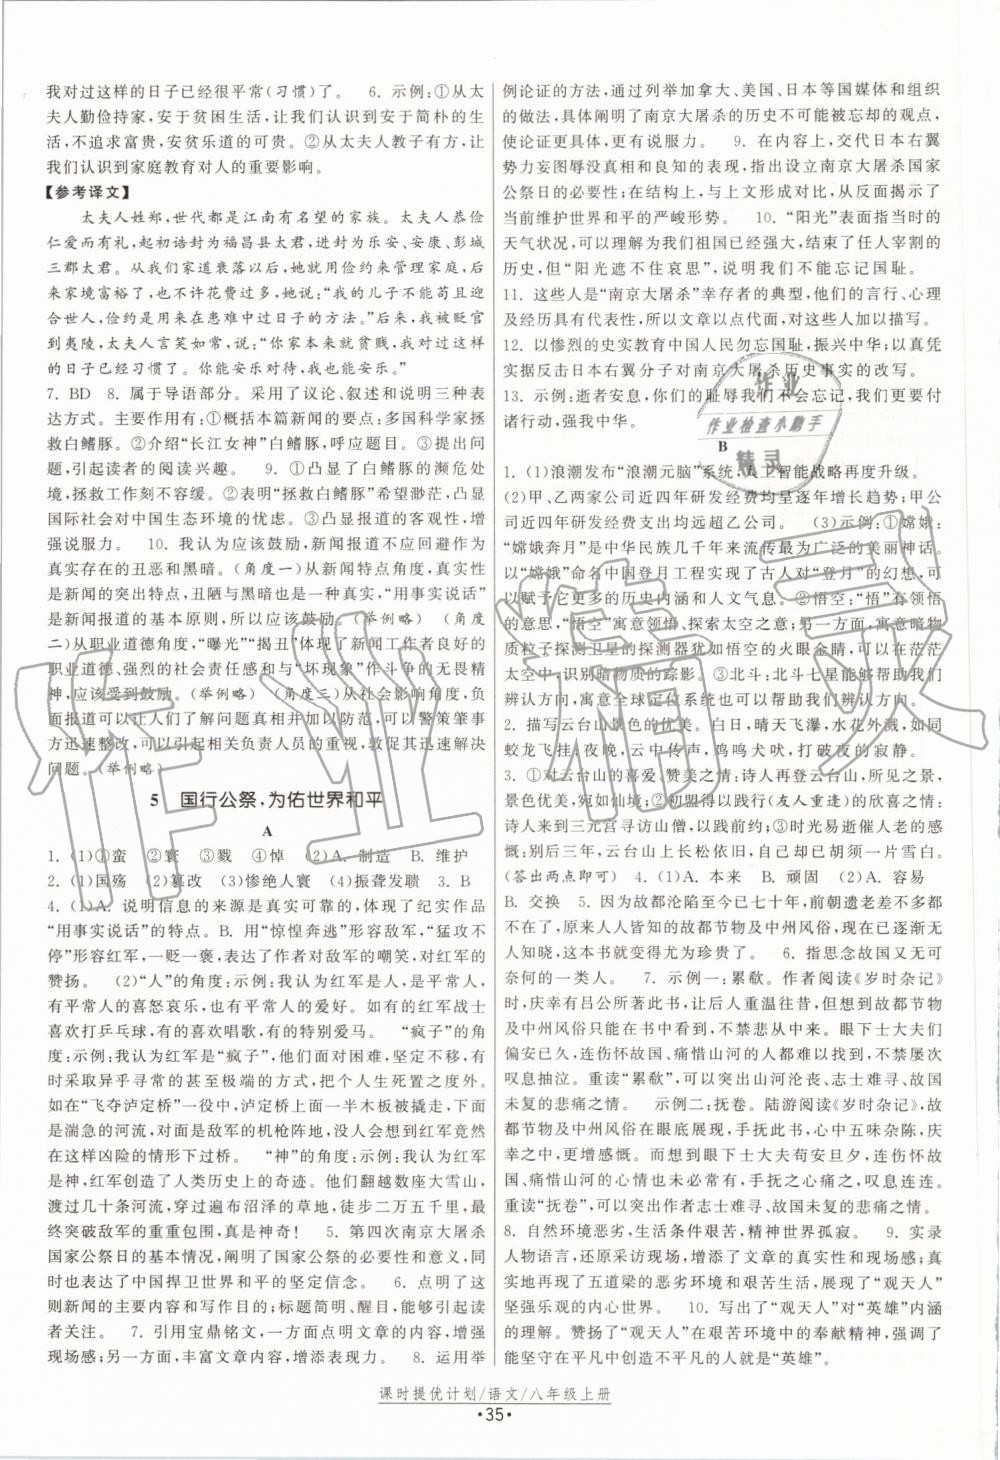 我对过这样的日子已经很平常(习惯)了。　6. 示例:①从太
夫人勤俭持家,安于贫困生活,让我们认识到安于简朴的生
活,不追求富贵,安贫乐道的可贵。②从太夫人教子有方,让
我们认识到家庭教育对人的重要影响。
【参考译文】
太夫人姓郑,世代都是江南有名望的家族。太夫人恭俭
仁爱而有礼,起初诰封为福昌县太君,进封为乐安、安康、彭城
三郡太君。从我们家道衰落以后,她就用俭约来管理家庭,后
来家境富裕了,也不许花费过多,她说:“我的儿子不能苟且迎
合世人,俭约是用来在患难中过日子的方法。”后来,我被贬官
到夷陵,太夫人言笑如常,说:“你家本来就贫贱,我已经习惯
它的日子了。你能安乐对待,我也能安乐。”
7. BD　8. 属于导语部分。采用了议论、叙述和说明三种表
达方式。主要作用有:①概括本篇新闻的要点:多国科学家拯
救白鳍豚。②介绍“长江女神”白鳍豚,呼应题目。③提出问
题,引起读者的阅读兴趣。　9. ①凸显了白鳍豚的濒危处
境,拯救工作刻不容缓。②表明“拯救白鳍豚”希望渺茫,凸显
国际社会对中国生态环境的忧虑。③凸显报道的客观性,增
强说服力。　10. 我认为应该鼓励,新闻报道不应回避作为
真实存在的丑恶和黑暗。(角度一)从新闻特点角度,真实性
是新闻的生命和力量,丑陋与黑暗也是一种真实,“用事实说话”
是新闻报道的基本原则,所以应该鼓励。(举例略)　(角度
二)从职业道德角度,“曝光”“揭丑”体现了新闻工作者良好的
职业道德、强烈的社会责任感和与“坏现象”作斗争的无畏精
神,应该受到鼓励。(举例略)　(角度三)从社会影响角度,负
面报道可以让人们了解问题真相并加以防范,可以警策肇事
方迅速整改,可以引起相关负责人员的重视,敦促其迅速解决
问题。(举例略)
5　国行公祭,为佑世界和平
A
1. (1)①蛮　②寰　③戮　④悼　(2)A. 制造　B. 维护
2. (1)国殇　(2)篡改　(3)惨绝人寰　(4)振聋发聩　3. B
4. (1)A. 说明信息的来源是真实可靠的,体现了纪实作品
“用事实说话”的特点。B. 用“惊惶奔逃”形容敌军,“猛攻不
停”形容红军,一贬一褒,表达了作者对敌军的嘲笑,对红军的
赞扬。　(2)“人”的角度:示例:我认为红军是人,是平常人,
有平常人的喜怒哀乐,也有平常人的喜好。如有的红军战士
喜欢打乒乓球,有的喜欢唱歌,有的特别爱马。　“疯子”的角
度:示例:我认为红军是“疯子”,他们面对困难,坚定不移,时
时采取异乎寻常的甚至极端的方式,把个人生死置之度外。
如在“飞夺泸定桥”一役中,泸定桥上面一半木板被抽掉,下面
是湍急的河流,对面是敌军的机枪阵地,没人想到红军竟然
在这样凶险的情形下过桥。　“神”的角度:示例:我认为红军
是神,红军创造了人类历史上的奇迹。他们翻越数座大雪山,
渡过几十条河流,穿过遍布沼泽的草地,徒步走二万五千里,最
终突破敌军的重重包围,真是神奇!　5. 第四次南京大屠杀
国家公祭日的基本情况,阐明了国家公祭的必要性和意义,同
时也表达了中国捍卫世界和平的坚定信念。　6. 点明了这
则新闻的主要内容和作者的写作目的;标题简明、醒目,能引起读
者关注。　7. 引用宝鼎铭文,一方面点明文章的内容,增强
现场感;另一方面,丰富文章内容,增添表现力。　8. 运用举
例论证的方法,通过列举加拿大、美国、日本等国媒体和组织
的做法,具体阐明了南京大屠杀的历史不可能被忘却的观点,
使论证更有说服力。　9. 在内容上,交代日本右翼
势力妄图辱没真相和良知的表现,指出设立南京大屠杀国家
公祭日的必要性;在结构上,与上文形成对比,从而揭示了
当前维护世界和平的严峻形势。　10. “阳光”表面指当时的
天气状况,可以理解为我们祖国已经强大,结束了任人宰割的
历史,但“阳光遮不住哀思”,说明我们不能忘记国耻。
11. 这些人是“南京大屠杀”幸存者的典型,他们的言行、心理
及经历具有代表性,所以文章以点代面,对这些人加以描写。
12. 以惨烈的史实教育中国人民勿忘国耻,振兴中华;以真凭
实据反击日本右翼分子对南京大屠杀历史事实的改写。
13. 示例:逝者安息,你们的耻辱我们不会忘记,我们更要付
诸行动,强我中华。
B
1. (1)浪潮发布“浪潮元脑”系统,人工智能战略再度升级。
(2)甲、乙两家公司近四年研发经费均呈逐年增长趋势;甲公
司近四年研发经费支出均远超乙公司。　(3)示例:①嫦娥:
“嫦娥奔月”是中华民族几千年来流传最为广泛的美丽神话。
以“嫦娥”命名中国登月工程实现了古人对“登月”的希望,也
可以赋予它更多的历史内涵和人文气息。②悟空:“悟”有领悟
的意思,“悟空”寓意领悟、探索太空之意;另一方面,寓意暗物
质粒子探测卫星的探测器犹如悟空的火眼金睛,可以在茫茫
太空中,识别暗物质的踪影。③北斗:北斗七星能够帮助我们
辨认方向,寓意全球定位系统也可以帮助我们辨认方向。
2. 描写云台山景色的优美。白日,晴天飞瀑,水花外溅,如同
蛟龙飞挂;夜晚,云中传声,鸡鸣犬吠,打破夜的寂静。
3. ①对云台山的喜爱、赞美之情:诗人再次登高,所见之景,
景色优美,宛如仙境;②初盟得以践行(友人重逢)的欣喜之情:
诗人来到三元宫寻访山僧,以践前盟;③时光易逝催人老的感
慨:别后三年,云台山上长松依旧,自己却已一片雪白。
(答出两点即可)　4. (1)A. 本来　B. 顽固　(2)A. 容易
B. 交换　5. 因为故都沦陷至今已七十年,前朝遗老差不多不
存在了,原来人人皆知的故都节物以及中州风俗,现在已逐渐无
人知晓,这本书就尤为珍贵了。　6. 指思念故国又无可
奈何的一类人。　7. 示例一:累欷。作者阅读《岁时杂记》
时,庆幸有吕公所著此书,让后人重温往昔,但想到故都节物
及中州风俗只能在书中看到,不禁悲从中来。眼下士大夫们
偏安已久,连伤怀故国、痛惜山河的人都没有了,不禁屡次
叹息抽泣。重读“累欷”,可以突出山河沦丧、志士难寻、故国
未复的悲凉之感。　示例二:抚卷。陆游阅读《岁时杂记》,故
都节物以及中州风俗如在眼底展现,手抚此书,心中五味杂陈,庆
幸还有此书,但想到眼下士大夫苟安旦夕,连在新亭
对泣般痛惜山河的人都没有了,手抚此书,不禁悲凉,叹息连连。
重读“抚卷”,可以突出作者志士难寻、故国未复的悲凉之感。
8. 自然环境恶劣,生活条件艰苦,精神世界孤寂。　9. 实录
人物语言,还原采访现场,增添了文章的真实性和现场感;真实
再现了五道梁的恶劣环境和艰苦生活,展现了“观天人”
坚强乐观的内心世界。　10. 写出了“观天人”对“英雄”内涵
的理解。赞扬了“观天人”在艰苦环境中的奉献精神,强调了
能坚守在平凡中创造不平凡的人就是“英雄”。
课时提优计划/语文/八年级上册
·35·
作业
作业检查小助手
精灵
作业精灵